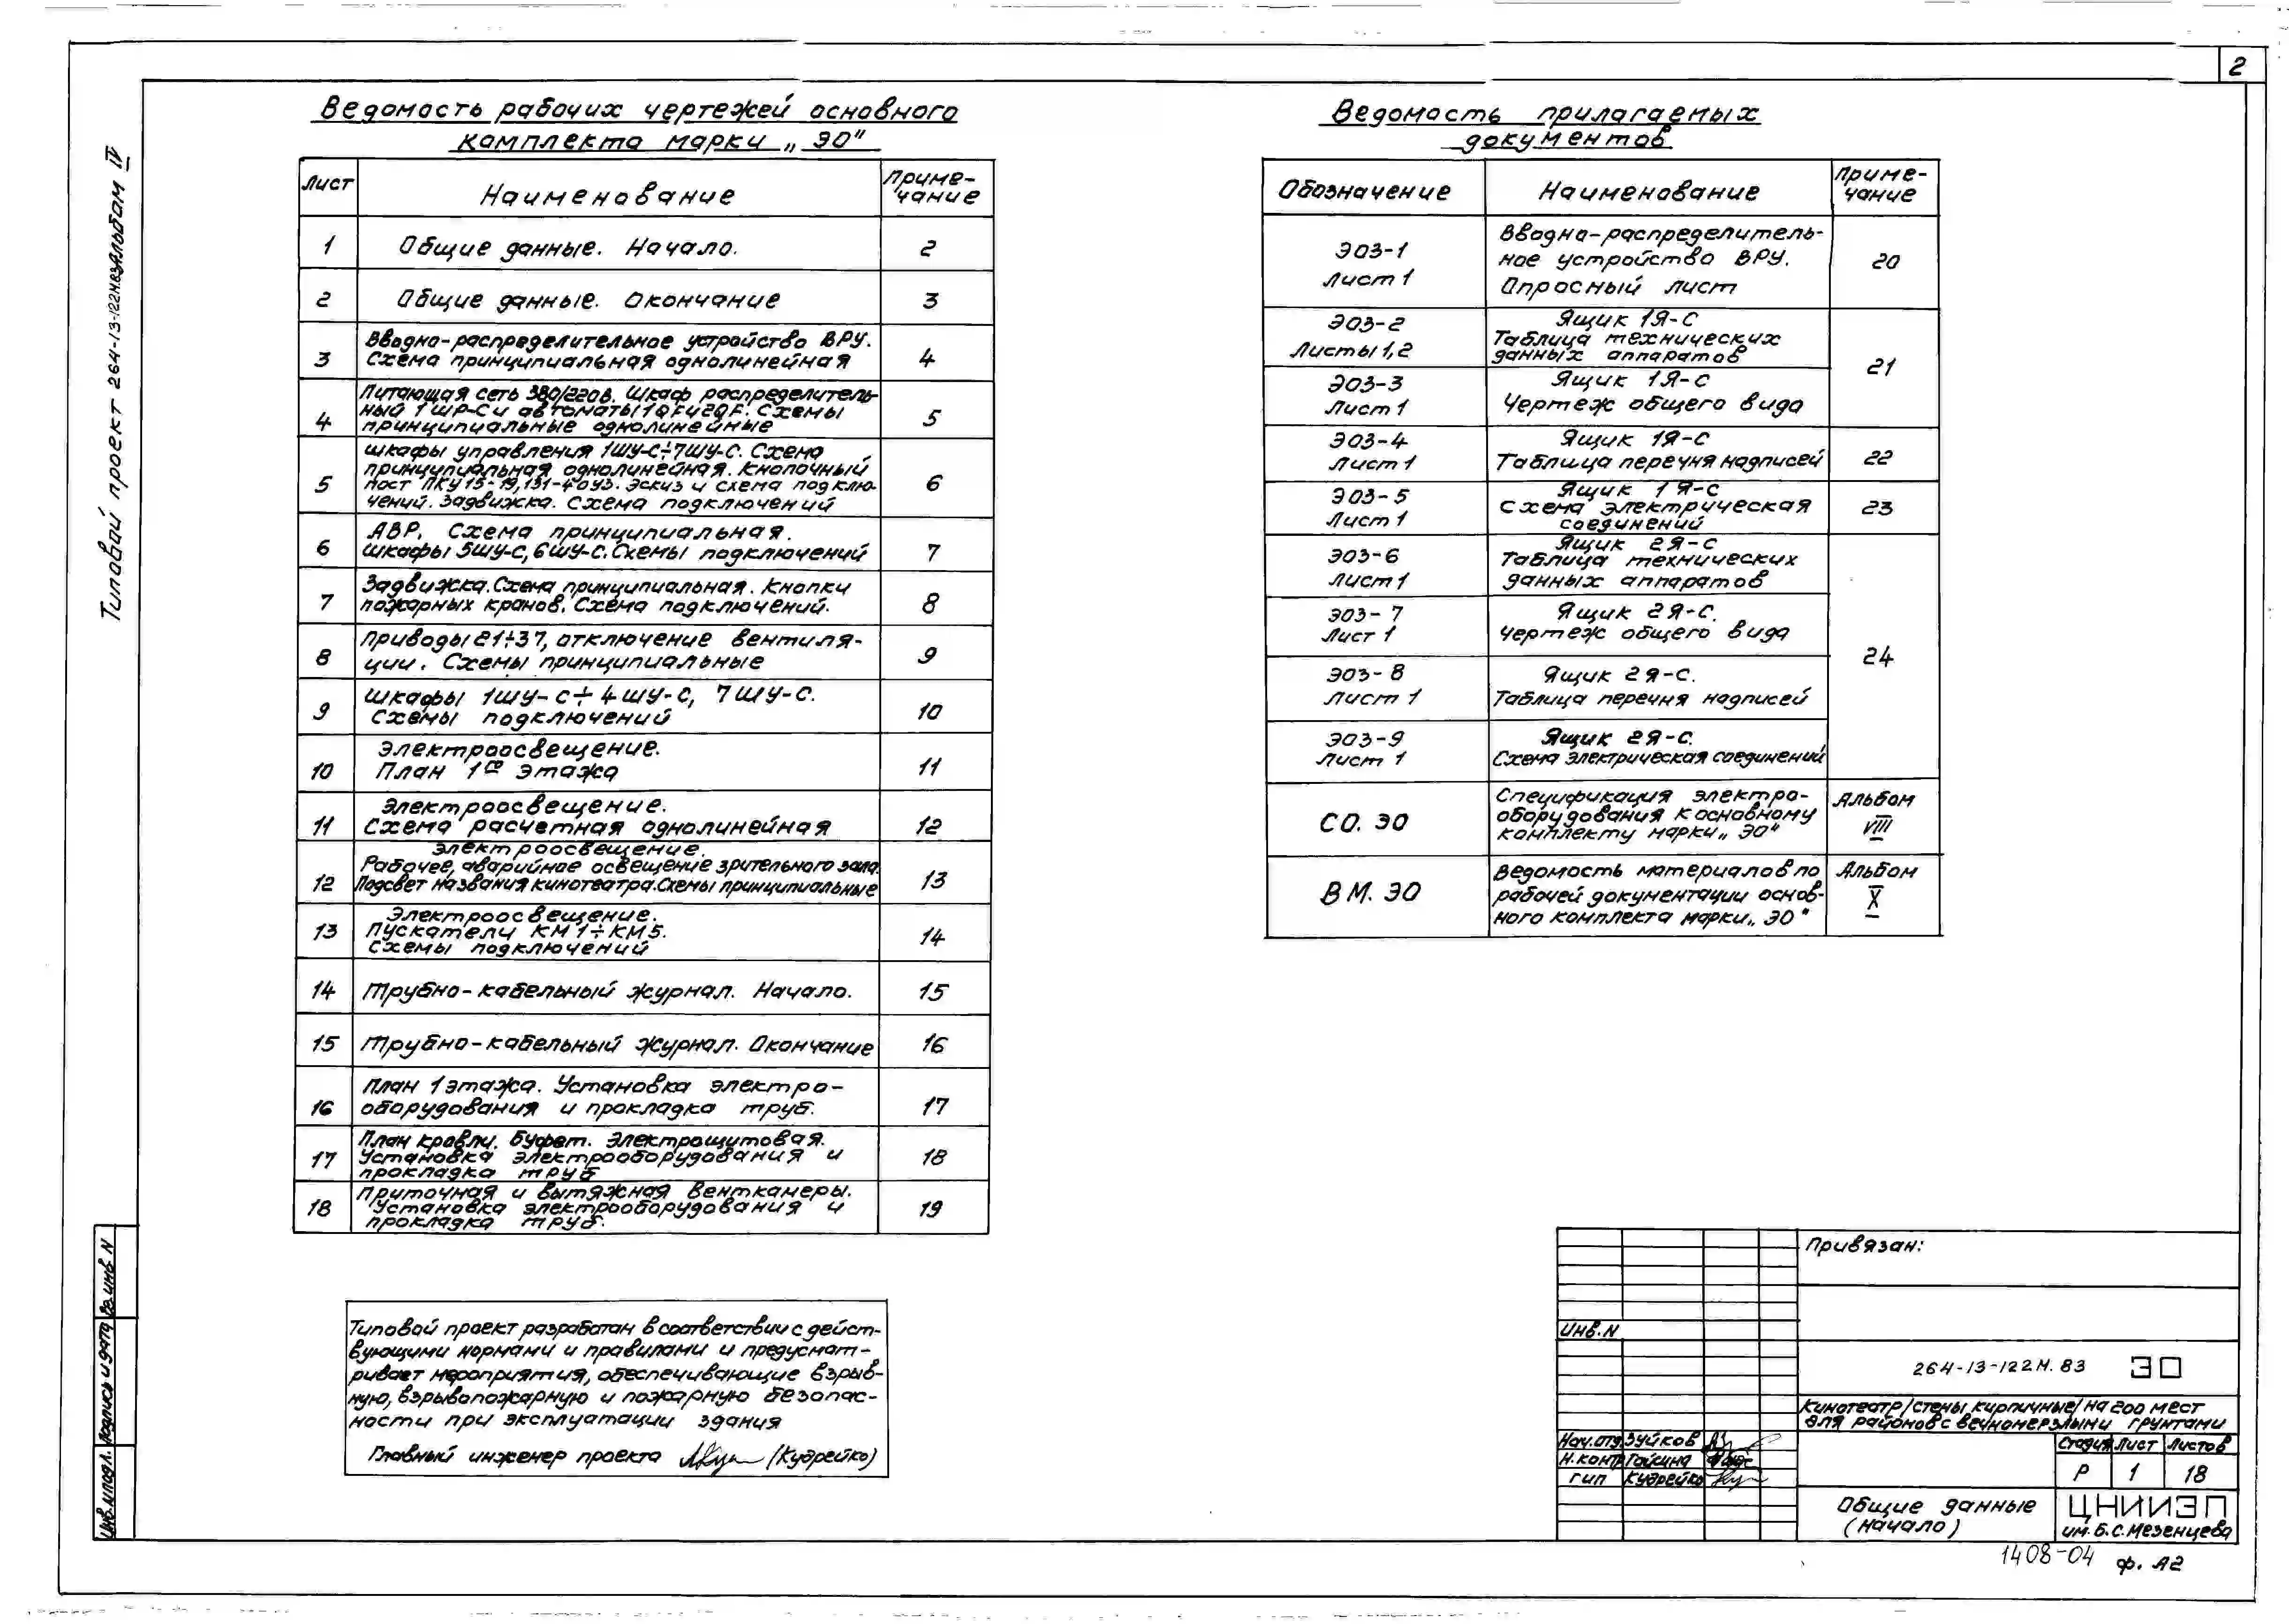 2
Типовой проект 264-13-122м.83 Альбом IV
Ведомость рабочих чертежей основного
комплекта марки „ЭО"
Лист Наименование Приме-
чание
1 Общие данные. Начало. 2
2 Общие данные. Окончание 3
Вводно-распределительное устройство ВРУ.
3 Схема принципиальная однолинейная 4
Питающая сеть 380/220в. Шкаф распределитель-
ный 1ШР-С и автоматы 1QF и 2QF. Схемы
4 принципиальные однолинейные 5
Шкафы управления 1ШУ-С÷7ШУ-С. Схема
принципиальная однолинейная. Кнопочный
5 пост ПКУ15-19,131-40У3. Эскиз и схема подклю- 6
чений. Задвижка. Схема подключений
АВР. Схема принципиальная.
6 Шкафы 5ШУ-С, 6ШУ-С. Схемы подключений 7
Задвижка. Схема принципиальная. Кнопки
7 пожарных кранов. Схема подключений. 8
Приводы 21÷37, отключение вентиля-
8 ции. Схемы принципиальные 9
Шкафы 1ШУ-С÷4ШУ-С, 7ШУ-С.
9 Схемы подключений 10
Электроосвещение.
10 План 1го этажа 11
Электроосвещение.
11 Схема расчетная однолинейная 12
Электроосвещение.
Рабочее, аварийное освещение зрительного зала.
12 Подсвет названия кинотеатра. Схемы принципиальные 13
Электроосвещение.
13 Пускатели КМ1÷КМ5. 14
Схемы подключений
14 Трубно-кабельный журнал. Начало. 15
15 Трубно-кабельный журнал. Окончание 16
План 1 этажа. Установка электро-
16 оборудования и прокладка труб. 17
План кровли. Буфет. Электрощитовая.
17 Установка электрооборудования и 18
прокладка труб
Приточная и вытяжная венткамеры.
18 Установка электрооборудования и 19
прокладка труб.
Типовой проект разработан в соответствии с дейст-
вующими нормами и правилами и предусмат-
ривает мероприятия, обеспечивающие взрыв-
ную, взрывопожарную и пожарную безопас-
ности при эксплуатации здания
Главный инженер проекта (Кудрейко)
Ведомость прилагаемых
документов
Обозначение Наименование Приме-
чание
ЭОЗ-1 Вводно-распределитель-
ное устройство ВРУ. 20
Лист 1 Опросный лист
ЭОЗ-2 Ящик 1Я-С
Листы 1,2 Таблица технических
данных аппаратов 21
ЭОЗ-3 Ящик 1Я-С
Лист 1 Чертеж общего вида
ЭОЗ-4 Ящик 1Я-С
Лист 1 Таблица перечня надписей 22
ЭОЗ-5 Ящик 1Я-С
Лист 1 Схема электрическая 23
соединений
ЭОЗ-6 Ящик 2Я-С
Таблица технических
Лист 1 данных аппаратов
ЭОЗ-7 Ящик 2Я-С.
Лист 1 Чертеж общего вида
24
ЭОЗ-8 Ящик 2Я-С.
Лист 1 Таблица перечня надписей
ЭОЗ-9 Ящик 2Я-С.
Лист 1 Схема электрическая соединений
СО.ЭО Спецификация электро- Альбом
оборудования к основному VIII
комплекту марки „ЭО"
ВМ.ЭО Ведомость материалов по Альбом
рабочей документации основ- X
ного комплекта марки „ЭО"
Привязан:
Инв.N
264-13-122м.83 ЭО
Кинотеатр /стены кирпичные/ на 200 мест
для районов с вечномерзлыми грунтами
Нач.отд. Зуйков
Н.контр Гайсина
ГИП Кудрейко
Стадия Лист Листов
Р 1 18
Общие данные
(начало)
ЦНИИЭП
им. Б.С. Мезенцева
1408-04
ф. А2
Инв.N подл. Подпись и дата Вз.инв N